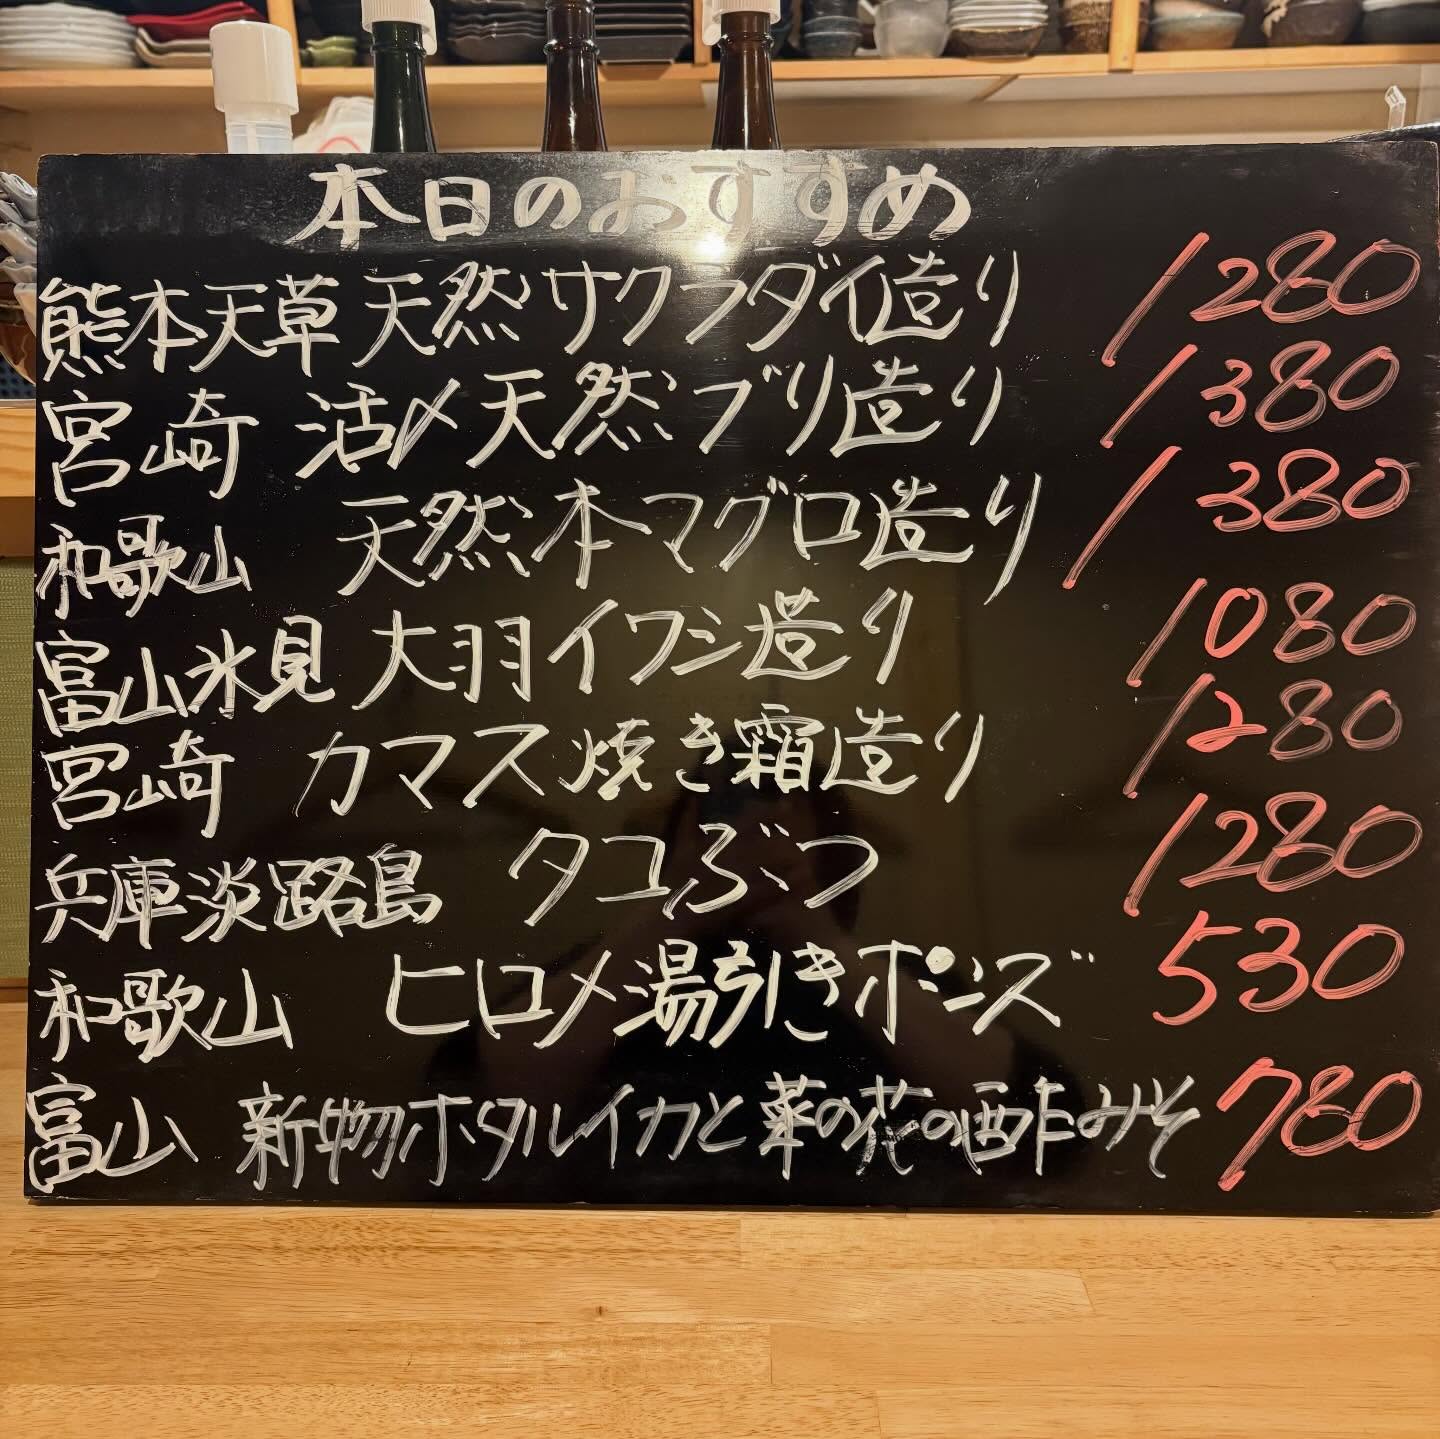 本日のおすすめ
熊本天草 天然サクラダイ造り 1280
宮崎 活〆天然ブリ造り 1380
和歌山 天然本マグロ造り 1380
富山氷見 大羽イワシ造り 1080
宮崎 カマス焼き霜造り 1280
兵庫淡路島 タコぶつ 1280
和歌山 ヒロメ湯引きポンズ 530
富山 新物ホタルイカと菜の花の酢みそ 780